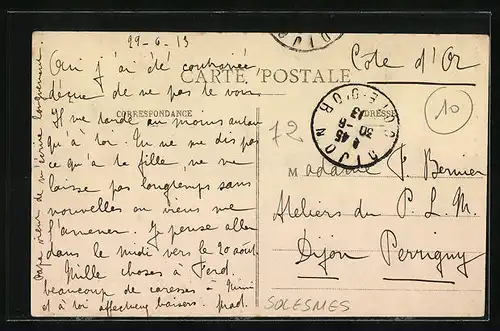 29-6-13
Oui j'ai été contrariée
déçue de ne pas te voir.
Il me tarde au moins autant
qu'à toi. Tu ne me dis pas
ce qu'a ta fille, ne me
laisse pas longtemps sans
nouvelles ou viens me
l'amener. Je pense aller
dans le midi vers le 20 août.
Mille choses à Ferd.
beaucoup de caresses à Mimi
et à toi affectueux baisers.
papa vient de m'écrire longuement.
CARTE POSTALE
CORRESPONDANCE
ADRESSE
Côte d'Or
DIJON
COTE-D'OR
45
30 -6
13
10
72
Madame F. Bernier
Ateliers du P. L. M.
Dijon Perrigny
SOLESMES